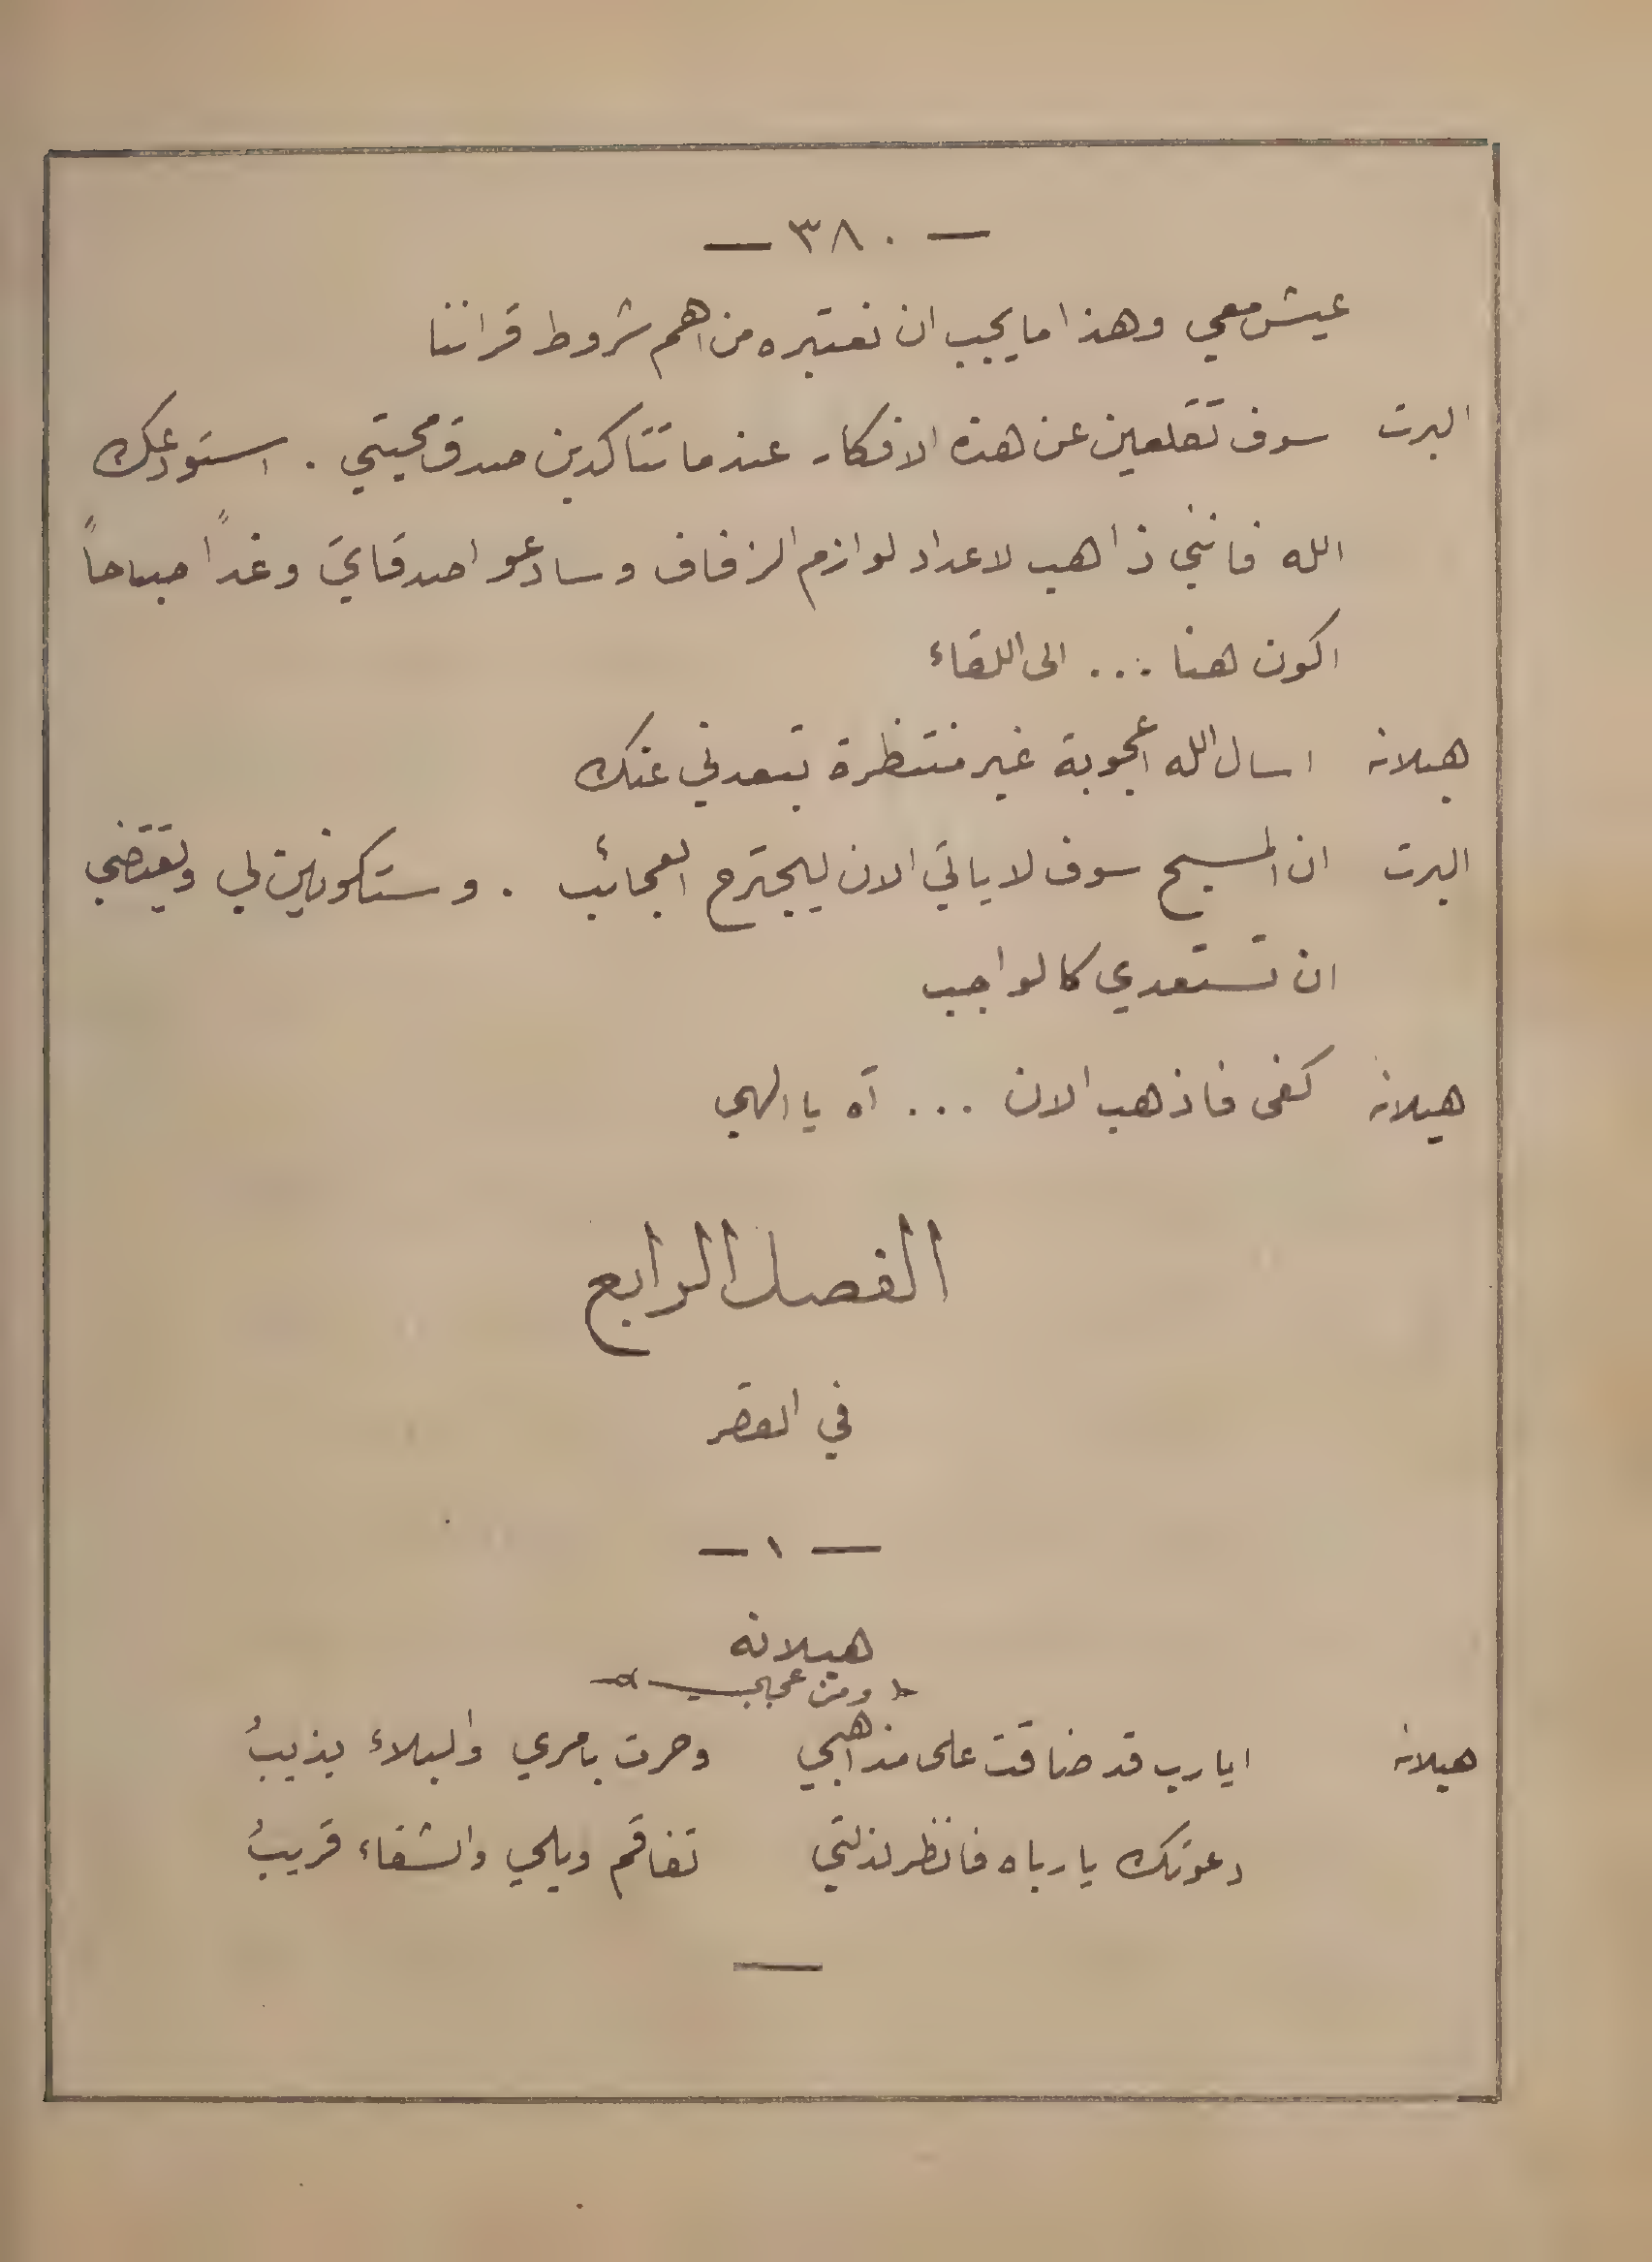 — ٣٨٠ —
عيش معي وهذا ما يجب ان نعتبره من اهم شروط قراننا
البرت سوف تقلعين عن هذه الافكار عندما تتاكدين صدق محبتي . استودعك
الله فانني ذاهب لاعداد لوازم الزفاف وسادعو اصدقايَ وغداً صباحاً
اكون هنا ... الى اللقاء
هيلانه اسال الله اعجوبة غير منتظرة تبعدني عنك
البرت ان المسيح سوف لا ياتي الان ليجترح العجائب . وستكونين لي ويقتضي
ان تستعدي كالواجب
هيلانه كفى فاذهب الان ... آه يا الهي
الفصل الرابع
في القصر
— ١ —
هيلانه
ومن عجب
هيلانه ايا رب قد ضاقت على مذاهبي وحرت بامري والبلاء يذيبُ
دعوتك يا رباه فانظر لذلتي تفاقم ويلي والشقاء قريبُ